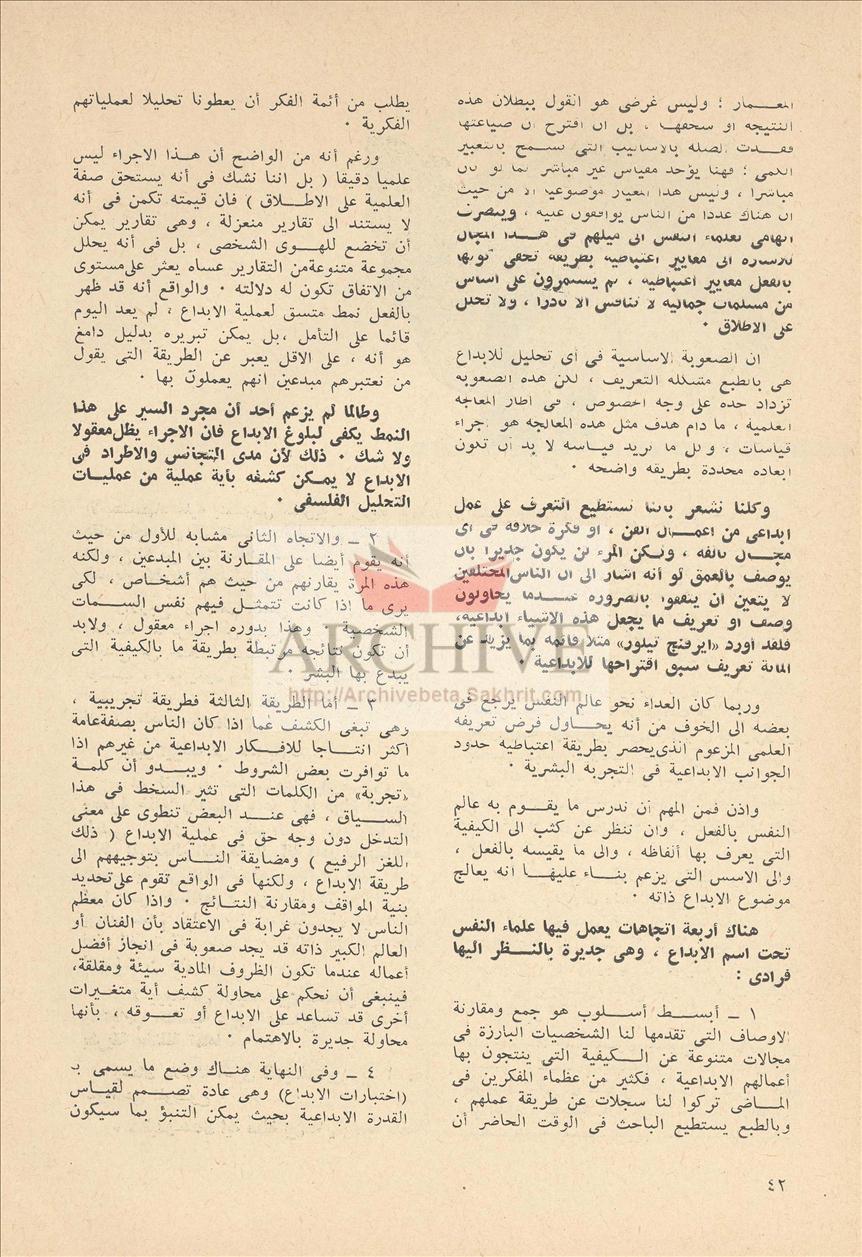 المعـــمار ؛ وليس غرضى هو القول ببطلان هذه
النتيجه او سخفها ، بل ان اقترح ان صياغتها
فقـدت الصله بالاساليب التى تسـمح بالتعبير
الكمى ؛ فهنا يؤخذ مقياس غير مباشر كما لو كان
مباشرا ، وليس هذا المعيار موضوعيا الا من حيث
ان هناك عددا من الناس يوافقون عليه ، وينصرف
اتهامى لعلماء النفس الى ميلهم فى هـــذا المجال
للاشاره الى معايير اعتباطيه بطريقه تخفى كونها
بالفعل معايير اعتباطيه ، ثم يستمرون على اساس
من مسلمات جماليه لا تناقش الا نادرا ، ولا تحلل
على الاطلاق ٠
ان الصعوبة الاساسية فى أى تحليل للابداع
هى بالطبع مشكله التعريف ، لكن هذه الصعوبه
تزداد حده على وجه الخصوص ، فى اطار المعالجه
العلمية ، ما دام هدف مثل هذه المعالجه هو اجراء
قياسات ، وكل ما نريد قياسه لا بد أن تكون
ابعاده محددة بطريقه واضحه ٠
وكلنا نشعر باننا نستطيع التعرف على عمل
ابداعى من اعمـــال الفن ، او فكرة خلاقه فى أى
مجـــال بالفه ، ولـكن المرء لن يكون جديرا بأن
يوصف بالعمق لو أنه اشار الى ان الناس المختلفين
لا يتعين ان يتفقوا بالضروره عنــدما يحاولون
وصف او تعريف ما يجعل هذه الاشياء ابداعيه،
فلقد أورد «ايرفنج تيلور» مثلا قائمه بما يزيد عن
المائة تعريف سبق اقتراحها للابداعية ٠
وربما كان العداء نحو عالم النفس يرجع فى
بعضه الى الخوف من أنه يحـــاول فرض تعريفه
العلمى المزعوم الذى يحصر بطريقة اعتباطيه حدود
الجوانب الابداعية فى التجربه البشرية ٠
واذن فمن المهم أن ندرس ما يقــوم به عالم
النفس بالفعل ، وان ننظر عن كثب الى الكيفية
التى يعرف بها أنفاظه ، والى ما يقيسه بالفعل ،
والى الاسس التى يزعم بنــاء عليهــا انه يعالج
موضوع الابداع ذاته ٠
هناك أربعة اتجاهات يعمل فيها علماء النفس
تحت اسم الابداع ، وهى جديرة بالنــظر اليها
فرادى :
١ ــ أبســط أســلوب هو جمع ومقارنة
الاوصاف التى تقدمها لنا الشخصيات البارزة فى
مجالات متنوعة عن الــكيفية التى ينتجون بها
أعمالهم الابداعية ، فكثير من عظماء المفكرين فى
المــاضى تركوا لنا سجلات عن طريقة عملهم ،
وبالطبع يستطيع الباحث فى الوقت الحاضر أن
يطلب من أئمة الفكر أن يعطونا تحليلا لعملياتهم
الفكرية ٠
ورغم أنه من الواضح أن هــذا الاجراء ليس
علميا دقيقا ( بل اننا نشك فى أنه يستحق صفة
العلمية على الاطــلاق ) فان قيمته تكمن فى أنه
لا يستند الى تقارير منعزلة ، وهى تقارير يمكن
أن تخضع للهــوى الشخصى ، بل فى أنه يحلل
مجموعة متنوعة من التقارير عساه يعثر على مستوى
من الاتفاق تكون له دلالته ٠ والواقع أنه قد ظهر
بالفعل نمط متسق لعملية الابداع ؛ لم يعد اليوم
قائما على التأمل ،بل يمكن تبريره بدليل دامغ
هو أنه ، على الاقل يعبر عن الطريقة التى يقول
من نعتبرهم مبدعين انهم يعملون بها ٠
وطالما لم يزعم أحد أن مجرد السير على هذا
النمط يكفى لبلوغ الابداع فان الاجراء يظل معقولا
ولا شك ٠ ذلك لأن مدى التجانس والاطراد فى
الابداع لا يمــكن كشفه بأية عملية من عمليــات
التحليل الفلسفى ٠
٢ ــ والاتجاه الثانى مشابه للأول من حيث
أنه يقوم أيضا على المقــارنة بين المبدعين ، ولكنه
هذه المرة يقارنهم من حيث هم أشخاص ، لكى
يرى ما اذا كانت تتمثــل فيهم نفس الســمات
الشخصية ، وهذا بدوره اجراء معقول ، ولابد
أن تكون نتائجه مرتبطة بطريقة ما بالكيفية التى
يبدع بها البشر ٠
٣ ــ أما الطريقة الثالثة فطريقة تجريبية ،
وهى تبغى الكشف عما اذا كان الناس بصفة عامة
أكثر انتــاجا للافــكار الابداعية من غيرهم اذا
ما توافرت بعض الشروط ٠ ويبــدو أن كلمة
«تجربة» من الكلمات التى تثير السخط فى هذا
الســـياق ، فهى عنــد البعض تنطوى على معنى
التدخل دون وجه حق فى عملية الابداع ( ذلك
اللغز الرفيع ) ومضايقة النــاس بتوجيههم الى
طريقة الابداع ، ولكنها فى الواقع تقوم على تحديد
بنية المواقف ومقارنة النتــائج ٠ واذا كان معظم
الناس لا يجدون غرابة فى الاعتقاد بأن الفنان أو
العالم الكبير ذاته قد يجد صعوبة فى انجاز أفضل
أعماله عندما تكون الظروف المادية سيئة ومقلقة،
فينبغى أن نحكم على محاولة كشف أية متغيرات
أخرى قد تساعد على الابداع أو تعــوقه ، بأنها
محاولة جديرة بالاهتمام ٠
٤ ــ وفى النهاية هنــاك وضع ما يسمى بـ
(اختبارات الابداع) وهى عادة تصــمم لقيــاس
القدرة الابداعية بحيث يمكن التنبؤ بما سيكون
ARCHIVE
http://Archivebeta.Sakhrit.com
٤٢